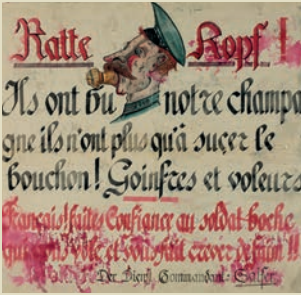 Ratte Kopf !
Ils ont bu notre champa
gne ils n'ont plus qu'à suçer le
bouchon ! Goinfres et voleurs
Français ! faites Confiance au soldat boche
qui vous et vous fait crever de faim !!
Der Dienst Commandant :